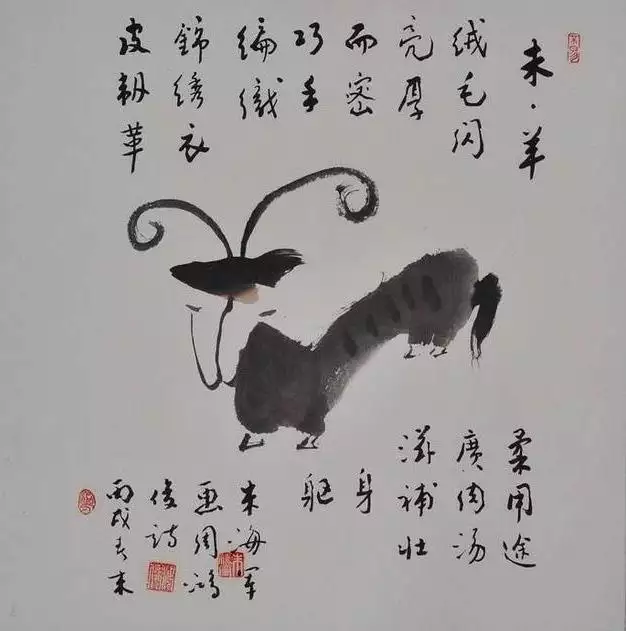 未·羊
绒毛闪
亮厚
而密
巧手
编織
錦绣衣
皮韧革
柔用途
廣肉汤
滋補壮
身
躯
朱海军
画周鴻
俊诗
丙戌春末